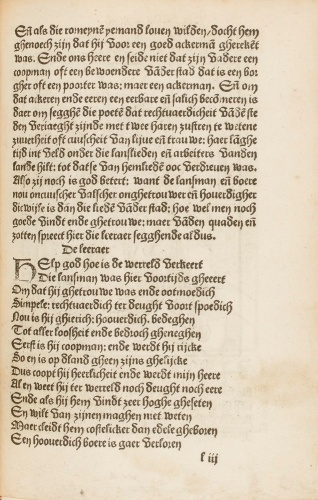 Eñ als die romeynẽ yemand loven wilden/docht hem
ghenoech zijn dat hij voor een goed ackermã gherekẽt
was. Ende ons heere en seide niet dat zijn vadere een
coopman oft een bewoendere vãder stad dat is een bor
gher oft een poorter was: maer een ackerman. Eñ om
dat ackeren ende eeren een eerbare eñ salich becõmeren is
daer om segghẽ die poetẽ dat rechtvaerdicheit vãdẽ ste
den veriaeght zijnde met twee haren zustren te wetene
zuverheit oft cuuscheit van lijve eñ trauwe: haer lãghe
tijd int veld onder die lanslieden eñ arbeiters vanden
lande hilt: tot datse van hemlieden ooc verdreven was.
Also zij noch is god betert: want de lansman eñ boere
nou oncuuscher valscher onghetrouwer eñ houerdigher
dicwijle is dan die liedẽ vãder stad: hoe wel men noch
goede vindt ende ghetrouwe: maer vãden quaden eñ
zotten spreect hier die leeraer segghende aldus.
De leeraer
HElp god hoe is de werreld verkeert
Die lansman was hier voortijds gheeert
Om dat hij ghetrouwe was ende ootmoedich
Simpele: rechtvaerdich ter deught voort spoedich
Nou is hij ghierich: hooverdich. bedeghen
Tot aller loosheit ende bedroch gheneghen
Eerst is hij coopman: ende werdt hij rijcke
So en is op dland gheen zijns ghelijcke
Dus coopt hij heerlicheit ende werdt mijn heere
Al en weet hij ter werreld noch deught noch eere
Ende als hij hem vindt zeer hoghe gheseten
En wilt van zijnen maghen niet weten
Maer cleidt hem costelicker dan edele gheboren
Een hooverdich boere is gaer verloren
l iij